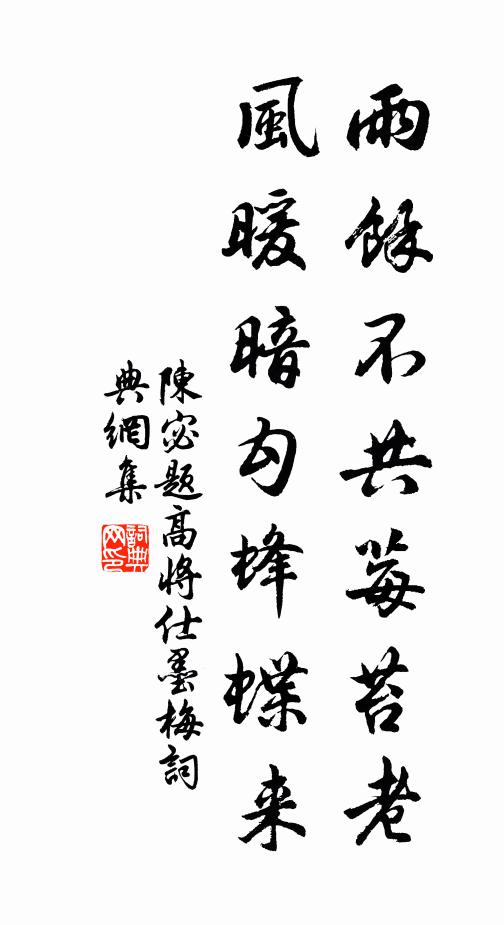 雨餘不共莓苔老
風暖暗勾蜂蝶来
陳宓題高將仕墨梅詞
典網集
詞典
网印